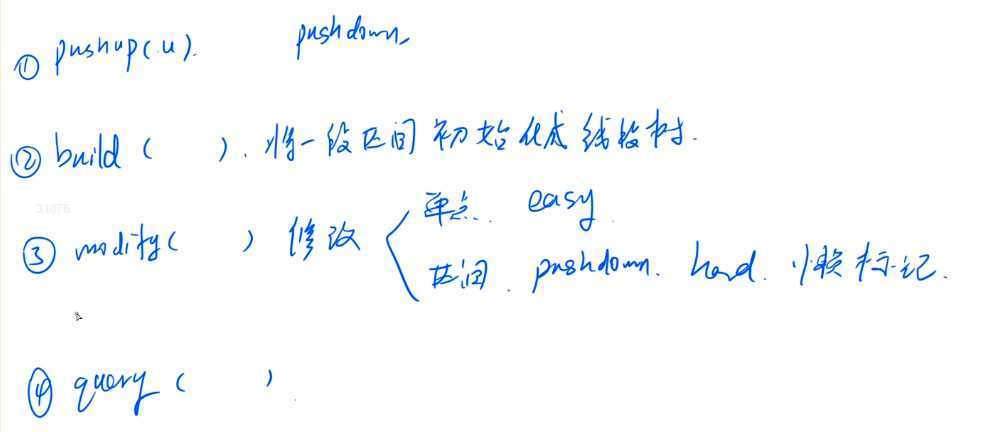 ① pushup(u). pushdown
② build ( ). 将一段区间初始化成线段树.
31976
③ modify( ) 修改
单点. easy.
区间. pushdown. hard. 懒标记.
④ query ( )